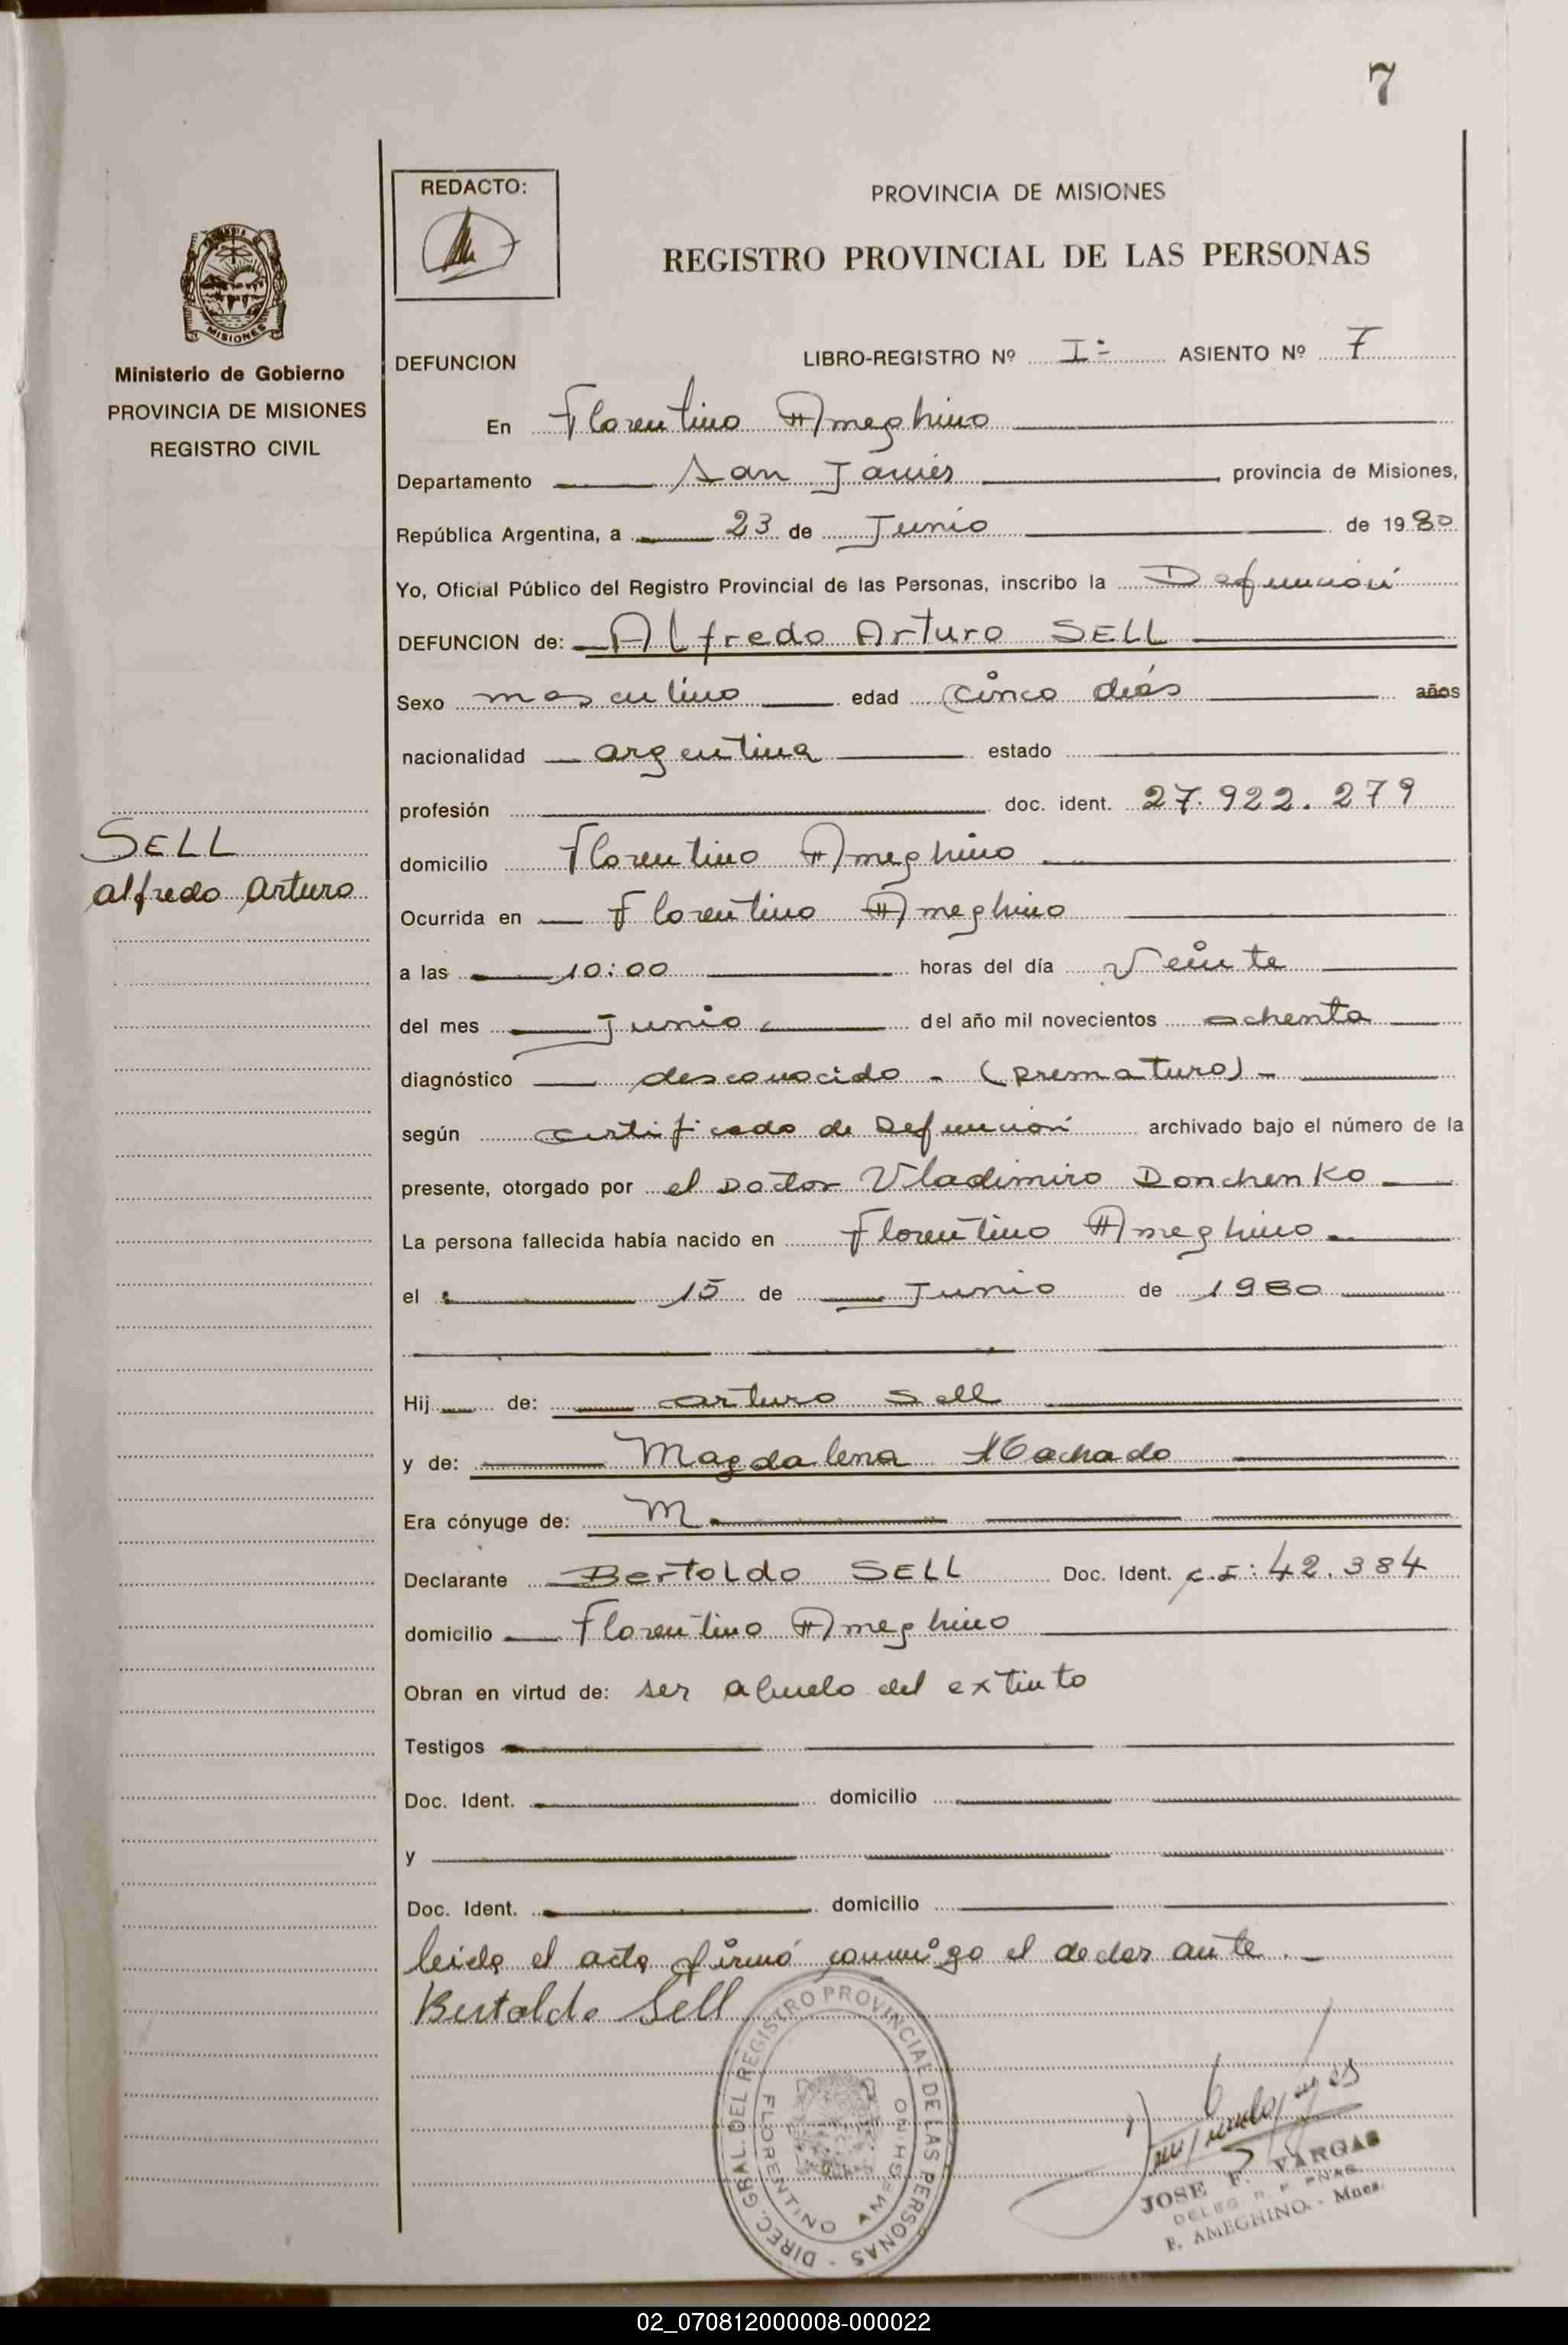 7
REDACTO:
PROVINCIA DE MISIONES
REGISTRO PROVINCIAL DE LAS PERSONAS
MISIONES
Ministerio de Gobierno
PROVINCIA DE MISIONES
REGISTRO CIVIL
DEFUNCION LIBRO-REGISTRO Nº Iº ASIENTO Nº 7
En Florentino Ameghino
Departamento San Javier provincia de Misiones,
República Argentina, a 23 de Junio de 1980
Yo, Oficial Público del Registro Provincial de las Personas, inscribo la Defunción
DEFUNCION de: Alfredo Arturo SELL
Sexo masculino edad cinco días años
nacionalidad argentina estado
profesión doc. ident. 27.922.279
SELL
Alfredo Arturo
domicilio Florentino Ameghino
Ocurrida en Florentino Ameghino
a las 10:00 horas del día Veinte
del mes Junio del año mil novecientos ochenta
diagnóstico desconocido - (prematuro) -
según certificado de Defunción archivado bajo el número de la
presente, otorgado por el Doctor Vladimiro Donchenko
La persona fallecida había nacido en Florentino Ameghino
el 15 de Junio de 1980
Hij de: Arturo Sell
y de: Magdalena Machado
Era cónyuge de:
Declarante Bertoldo SELL Doc. Ident. C.I: 42.384
domicilio Florentino Ameghino
Obran en virtud de: ser abuelo del extinto
Testigos
Doc. Ident. domicilio
y
Doc. Ident. domicilio
leida el acta firmó conmigo el declarante. -
Bertoldo Sell
DIREC. GRAL. DEL REGISTRO PROVINCIAL DE LAS PERSONAS -
FLORENTINO AMEGHINO
JOSE F. VARGAS
DELEG. R. P. PNAS.
F. AMEGHINO. - Mnes.
02_070812000008-000022